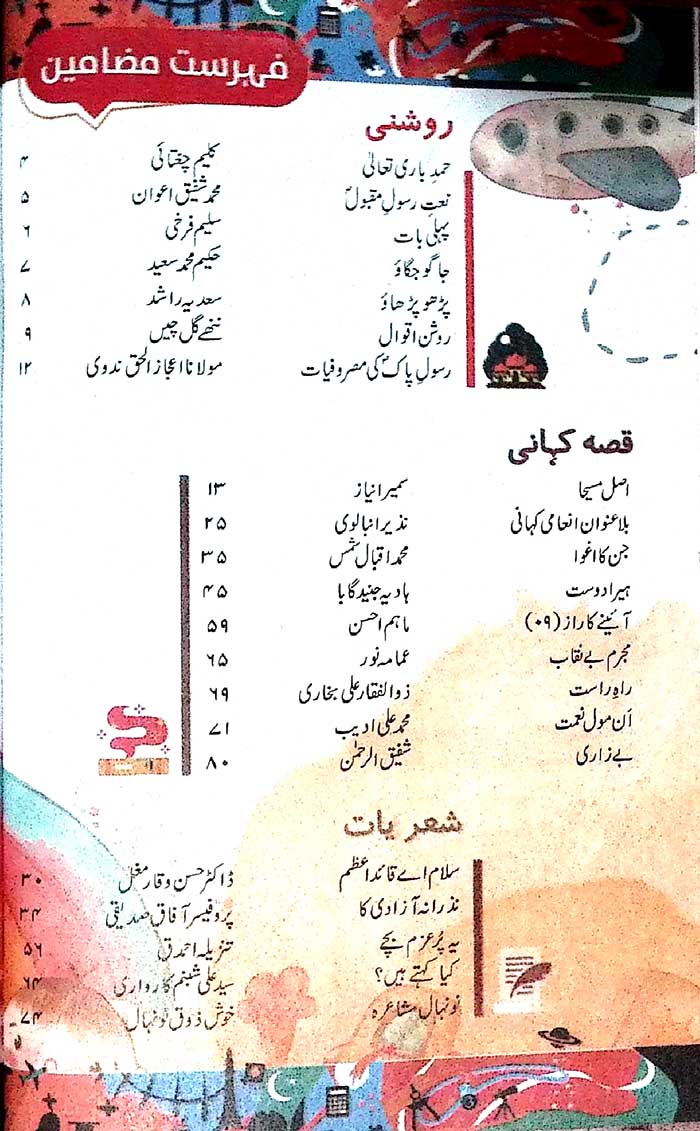 فہرست مضامین
روشنی
حمدِ باری تعالیٰ کلیم چغتائی ۴
نعتِ رسولِ مقبولؐ محمد شفیق اعوان ۵
پہلی بات سلیم فرخی ۶
جاگو جگاؤ حکیم محمد سعید ۷
پڑھو پڑھاؤ سعدیہ راشد ۸
روشن اقوال ننھے گل چیں ۹
رسولِ پاکؐ کی مصروفیات مولانا اعجاز الحق ندوی ۱۲
قصہ کہانی
اصل مسیحا سمیرا نیاز ۱۳
بلا عنوان انعامی کہانی نذیر انبالوی ۲۵
جن کا اغوا محمد اقبال شمس ۳۵
ہیرا دوست ہادیہ جنید گابا ۴۵
آئینے کا راز (۰۹) ماہم احسن ۵۹
مجرم بے نقاب عمامہ نور ۶۵
راہِ راست ذوالفقار علی بخاری ۶۹
اَن مول نعمت محمد علی ادیب ۷۱
بے زاری شفیق الرحمٰن ۸۰
شعریات
سلام اے قائد اعظم ڈاکٹر حسن وقار مغل ۳۰
نذرانہ آزادی کا پروفیسر آفاق صدیقی ۳۴
یہ پُرعزم بچے تنزیلہ احمد ۵۶
کیا کہتے ہیں؟ سید علی شبنم کارواری ۶۴
نونہال مشاعرہ خوش ذوق نونہال ۷۴